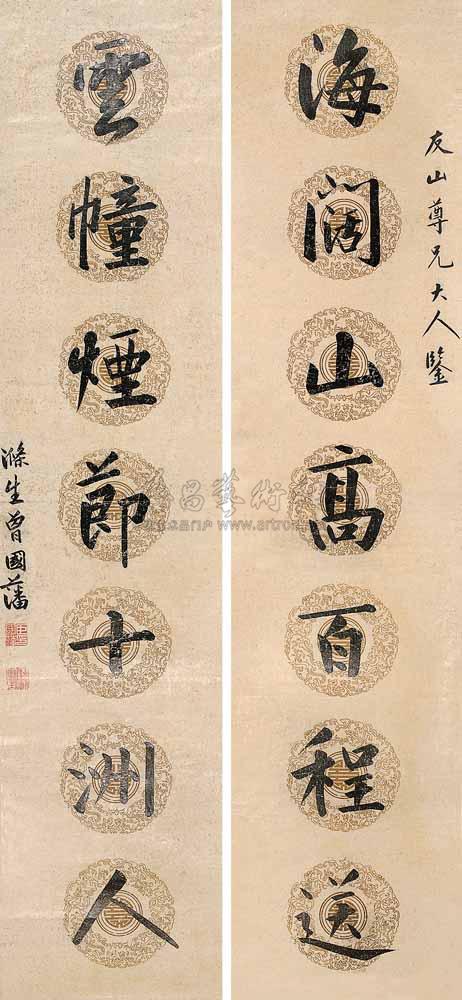 友山尊兄大人鑒
海闊山高百程送
雲幢煙節十洲人
滌生曾國藩